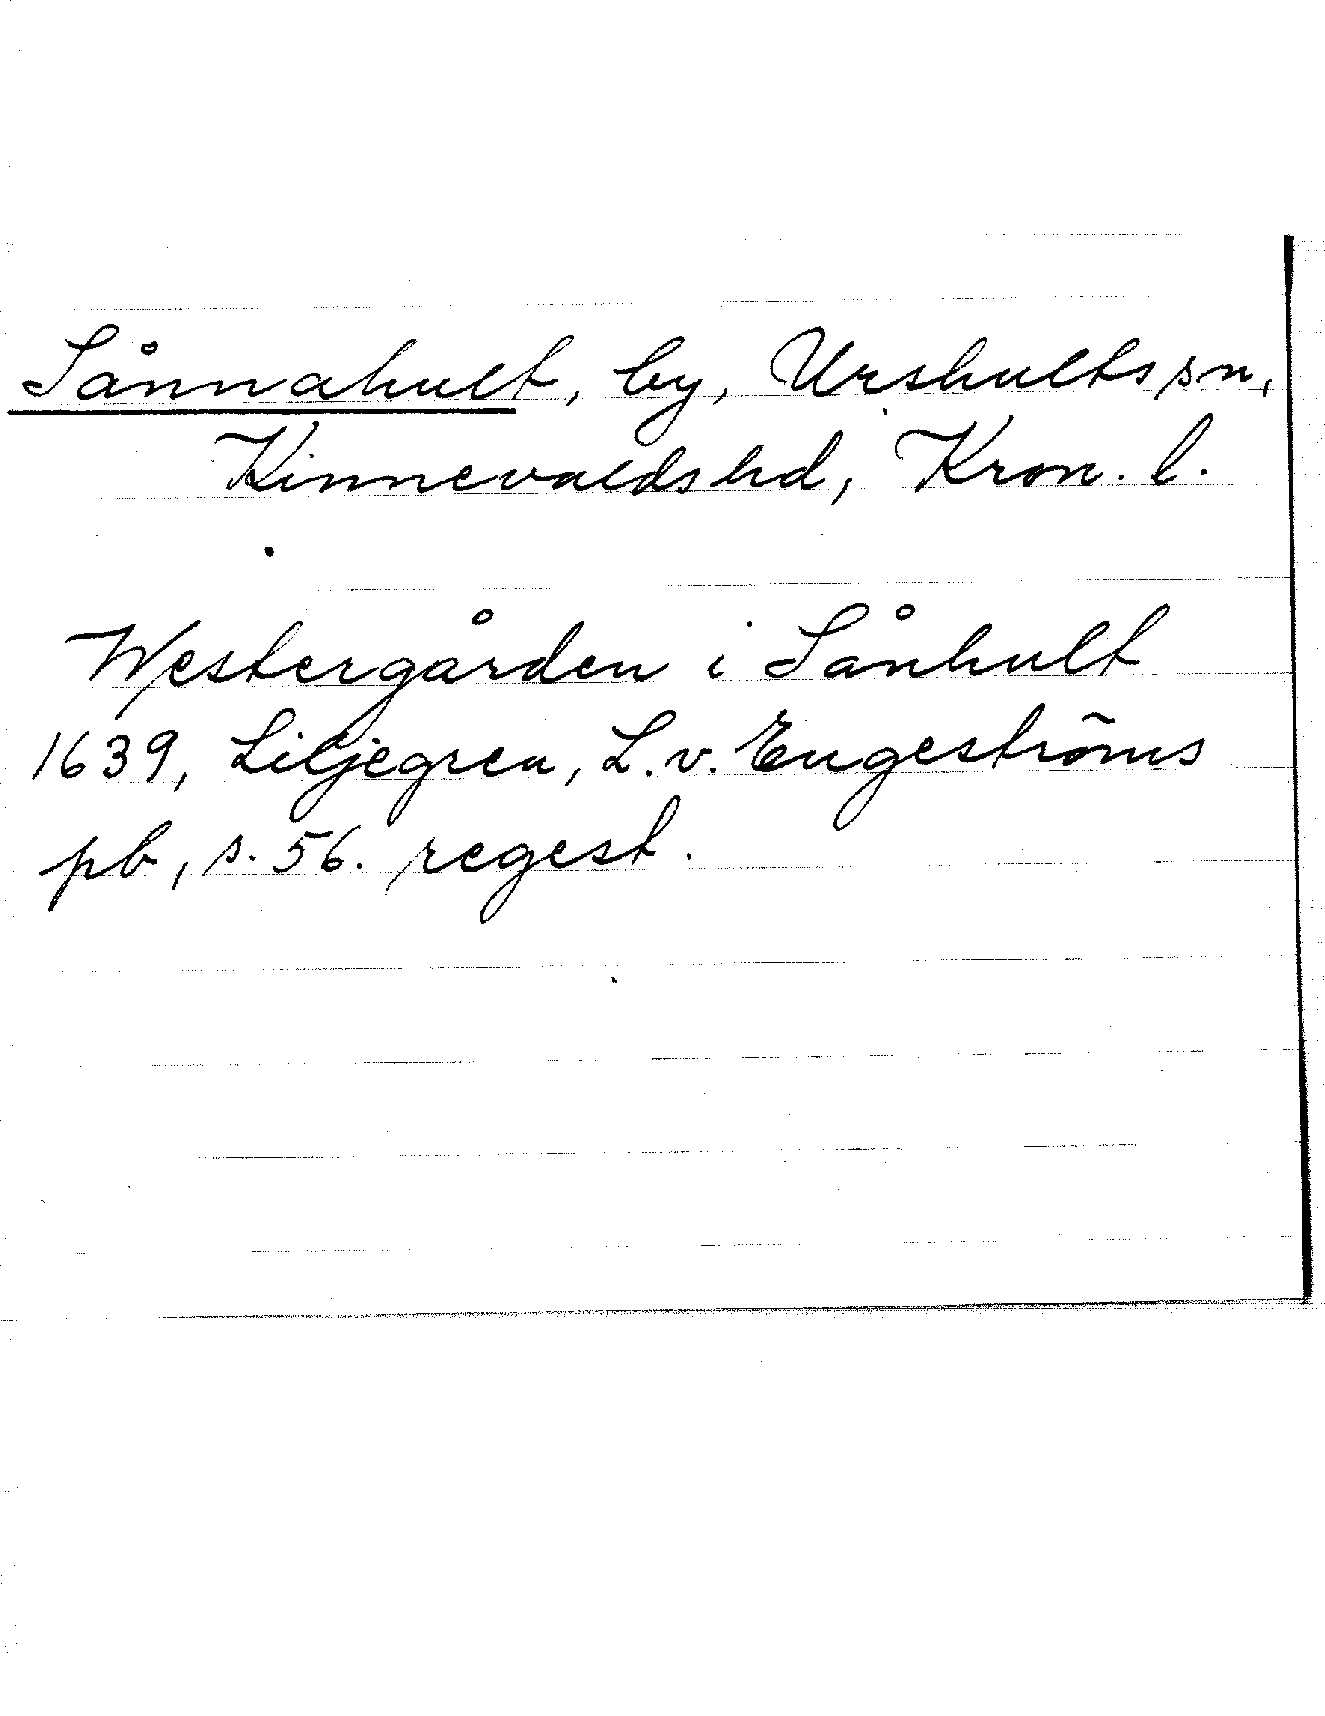 Sånnahult, by, Urshults sn,
Kinnevalds hd, Kron. l.
Westergården i Sånhult
1639, Liljegren, L. v. Engeströms
pb, s. 56. regest.